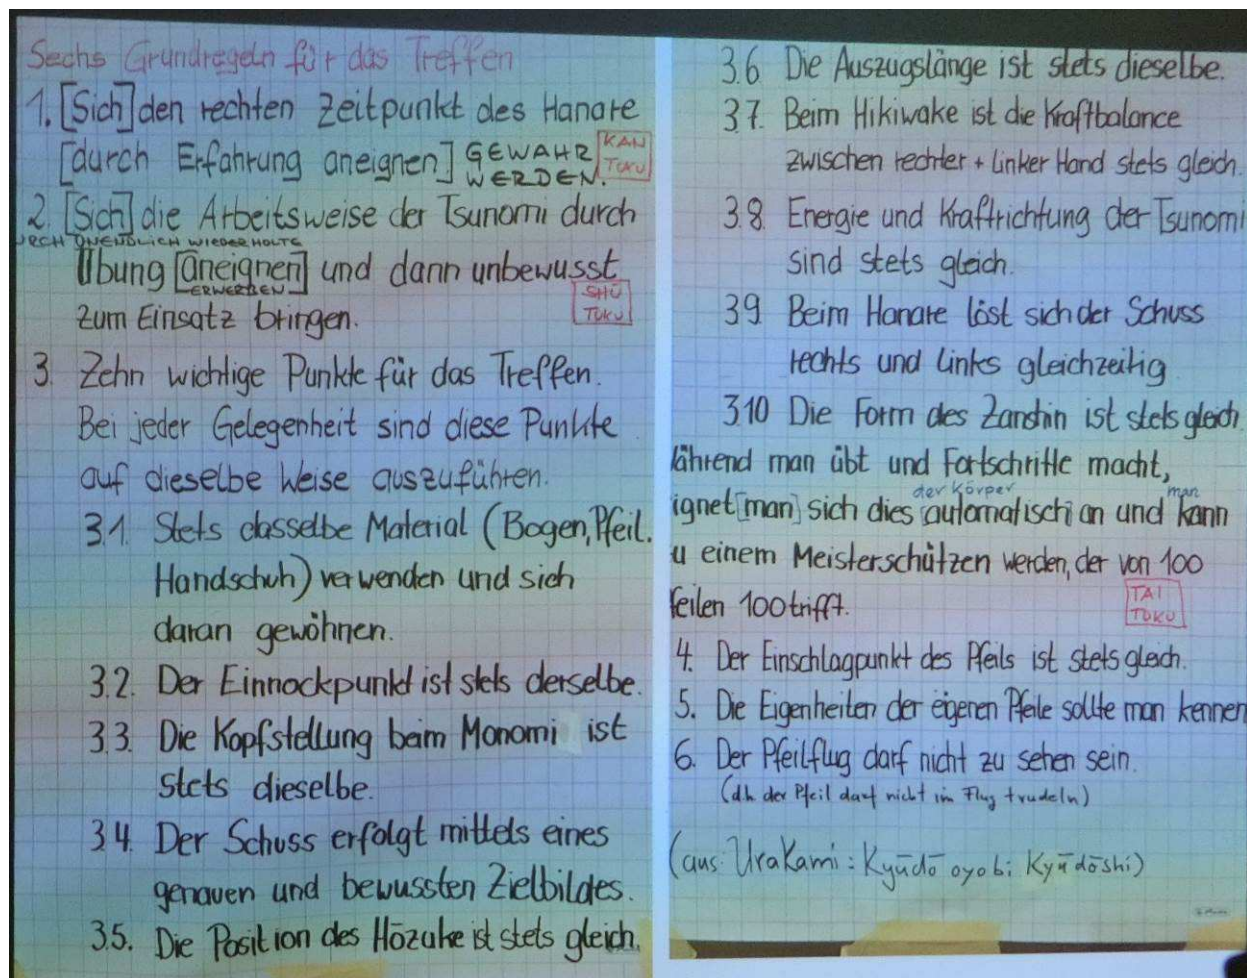 Sechs Grundregeln für das Treffen
1. [Sich] den rechten Zeitpunkt des Hanare
[durch Erfahrung aneignen] GEWAHR WERDEN. KAN TOKU
2. [Sich] die Arbeitsweise der Tsunomi durch
URCH UNENDLICH WIEDERHOLTE
Übung [aneignen] und dann unbewusst
ERWERBEN
zum Einsatz bringen. SHŪ TOKU
3. Zehn wichtige Punkte für das Treffen.
Bei jeder Gelegenheit sind diese Punkte
auf dieselbe Weise auszuführen.
3.1. Stets dasselbe Material (Bogen, Pfeil.
Handschuh) verwenden und sich
daran gewöhnen.
3.2. Der Einnockpunkt ist stets derselbe.
3.3. Die Kopfstellung beim Monomi ist
stets dieselbe.
3.4. Der Schuss erfolgt mittels eines
genauen und bewussten Zielbildes.
3.5. Die Position des Hōzuke ist stets gleich.
3.6 Die Auszugslänge ist stets dieselbe.
3.7. Beim Hikiwake ist die Kraftbalance
zwischen rechter + linker Hand stets gleich.
3.8 Energie und Kraftrichtung der Tsunomi
sind stets gleich.
3.9 Beim Hanare löst sich der Schuss
rechts und links gleichzeitig
3.10 Die Form des Zanshin ist stets gleich
ährend man übt und Fortschritte macht,
der Körper man
ignet [man] sich dies automatisch an und kann
u einem Meisterschützen werden, der von 100
feilen 100 trifft. TAI TOKU
4. Der Einschlagpunkt des Pfeils ist stets gleich.
5. Die Eigenheiten der eigenen Pfeile sollte man kennen
6. Der Pfeilflug darf nicht zu sehen sein.
(dh. der Pfeil darf nicht im Flug trudeln)
(aus: Urakami: Kyūdō oyobi Kyūdōshi)